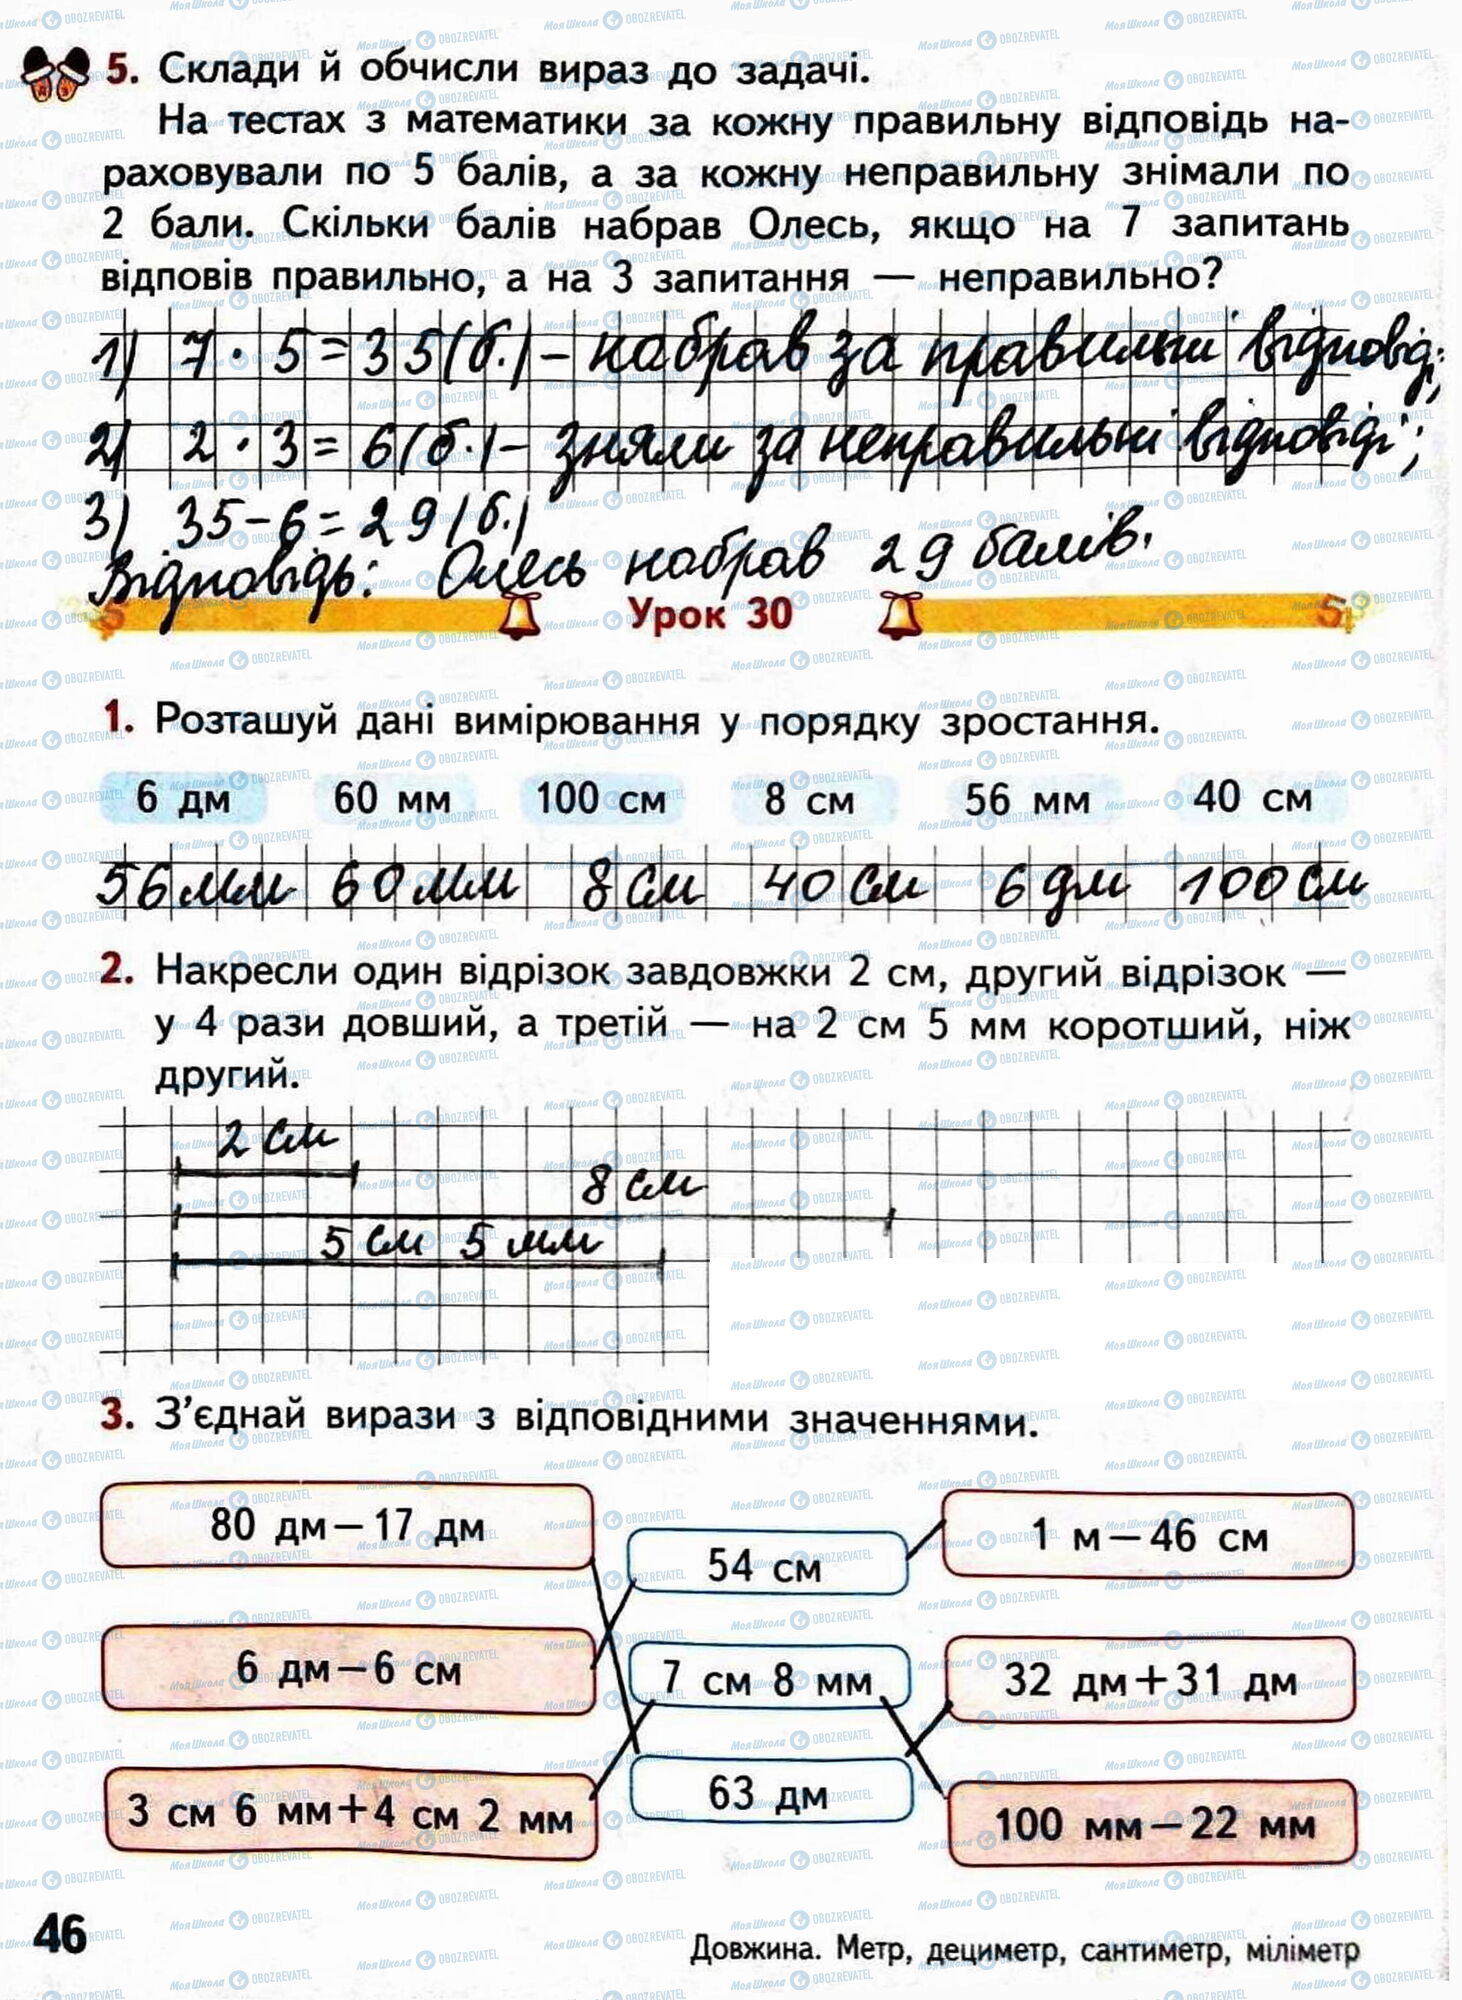 5. Склади й обчисли вираз до задачі.
На тестах з математики за кожну правильну відповідь на-
раховували по 5 балів, а за кожну неправильну знімали по
2 бали. Скільки балів набрав Олесь, якщо на 7 запитань
відповів правильно, а на 3 запитання — неправильно?
1) 7 · 5 = 35 (б.) – набрав за правильні відповіді;
2) 2 · 3 = 6 (б.) – зняли за неправильні відповіді;
3) 35 – 6 = 29 (б.)
Відповідь: Олесь набрав 29 балів.
Урок 30
1. Розташуй дані вимірювання у порядку зростання.
6 дм 60 мм 100 см 8 см 56 мм 40 см
56 мм 60 мм 8 см 40 см 6 дм 100 см
2. Накресли один відрізок завдовжки 2 см, другий відрізок —
у 4 рази довший, а третій — на 2 см 5 мм коротший, ніж
другий.
2 см
8 см
5 см 5 мм
3. З'єднай вирази з відповідними значеннями.
80 дм – 17 дм
54 см
1 м – 46 см
6 дм – 6 см
7 см 8 мм
32 дм + 31 дм
3 см 6 мм + 4 см 2 мм
63 дм
100 мм – 22 мм
46
Довжина. Метр, дециметр, сантиметр, міліметр
МояШкола OBOZREVATEL